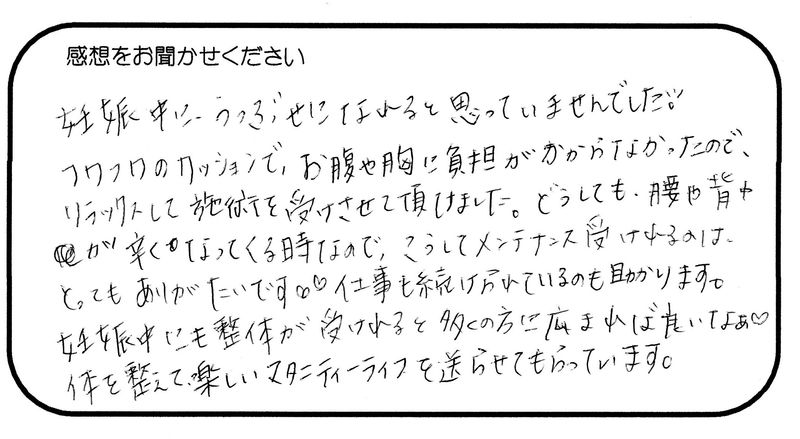 感想をお聞かせください
妊娠中に、うつぶせになれると思っていませんでした!!
フワフワのクッションで、お腹や胸に負担がかからなかったので、
リラックスして施術を受けさせて頂けました。どうしても、腰や背中
が辛くなってくる時なので、こうしてメンテナンス受けれるのは、
とってもありがたいです。♡仕事も続けられているのも助かります。
妊娠中にも整体が受けれると多くの方に広まれば良いなぁ♡
体を整えて、楽しいマタニティーライフを送らせてもらっています。